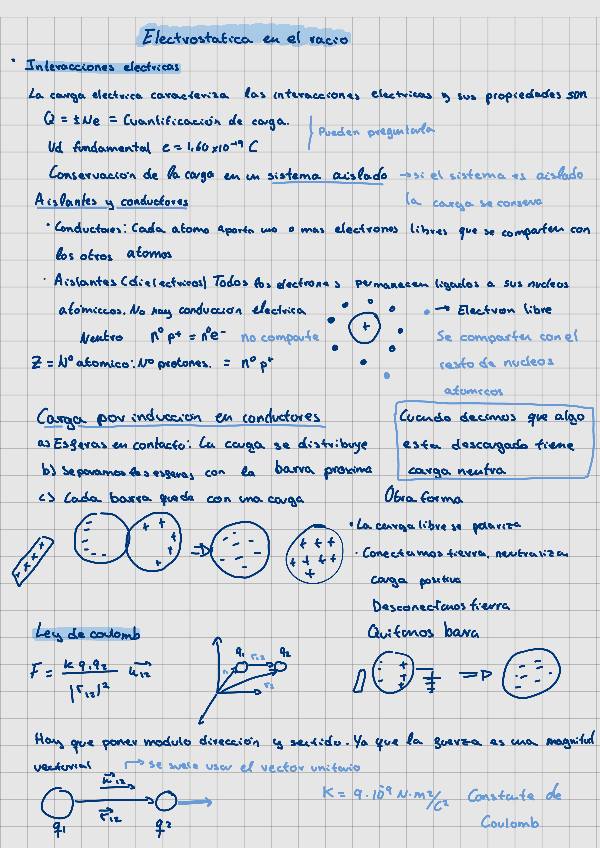 Electrostatica en el vacio
• Interacciones electricas
La carga electrica caracteriza las interacciones electricas y sus propiedades son
Q = ±Ne = Cuantificación de carga.
Pueden preguntarla
Ud fundamental e = 1,60 x 10⁻¹⁹ C
Conservacion de la carga en un sistema aislado → si el sistema es aislado
la carga se conserva
Aislantes y conductores
• Conductores: Cada atomo aporta uno o mas electrones libres que se comparten con
los otros atomos
• Aislantes (dielectricos) Todos los electrones permanecen ligados a sus nucleos
atomiccos. No hay conduccion electrica
→ Electron libre
Neutro nº p⁺ = nº e⁻ no comparte
Se comparten con el
Z = Nº atomico: Nº protones. = nº p⁺
resto de nucleos
atomicos
+
Carga por induccion en conductores
a) Esferas en contacto: La carga se distribuye
b) Separamos las esferas con la barra proxima
c) Cada barra queda con una carga
Cuando decimos que algo
esta descargado tiene
carga neutra
Otra forma
• La carga libre se polariza
• Conectamos tierra, neutraliza
carga positiva
Desconectamos tierra
Quitamos barra
Ley de coulomb
F = K q₁ q₂ / |r₁₂|² u₁₂
q₁ r₁₂ q₂
r₁ r₂
Hay que poner modulo direccion y sentido. Ya que la fuerza es una magnitud
vectorial → se suele usar el vector unitario
u₁₂
r₁₂
q₁ q₂
K = 9·10⁻⁹ N·m²/C² Constante de
Coulomb